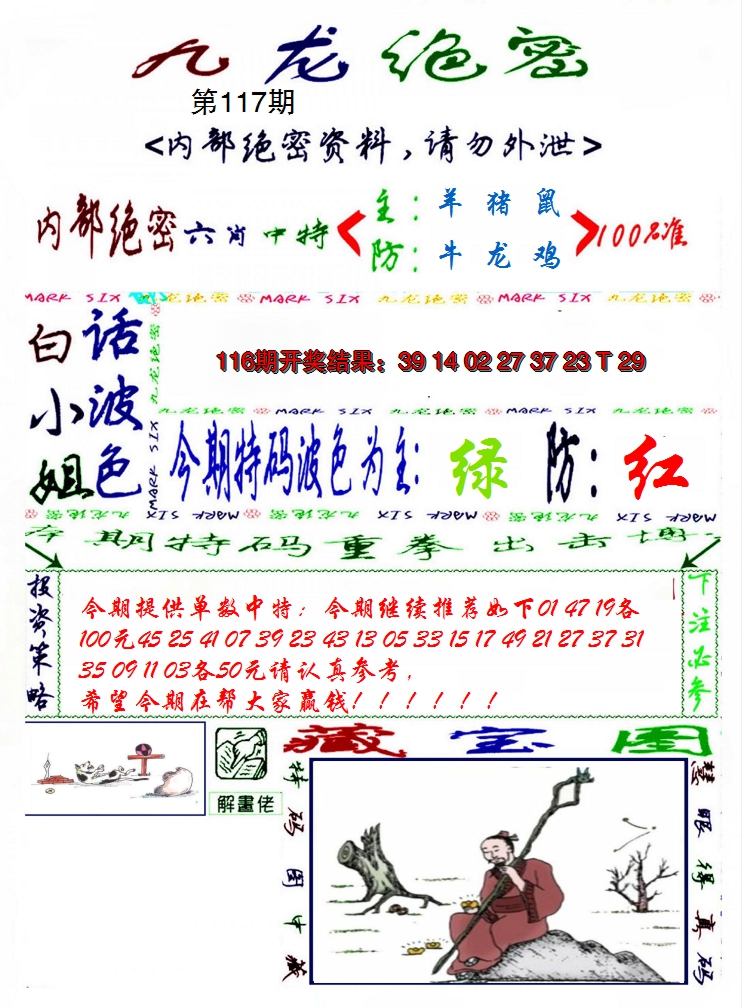 九龙绝密
第117期
<内部绝密资料，请勿外泄>
内部绝密六肖中特
主：羊 猪 鼠
防：牛 龙 鸡
100%准
MARK SIX 九龙绝密 MARK SIX 九龙绝密 MARK SIX 九龙绝密
白小姐
话波色
九龙绝密 MARK SIX
116期开奖结果：39 14 02 27 37 23 T 29
九龙绝密 MARK SIX 九龙绝密 MARK SIX 九龙绝密
今期特码波色为主：绿 防：红
MARK SIX 九龙绝密 MARK SIX 九龙绝密 MARK SIX 九龙绝密
期特码重拳出击
投资策略
今期提供单数中特；今期继续推荐如下01 47 19各
100元45 25 41 07 39 23 43 13 05 33 15 17 49 21 27 37 31
35 09 11 03各50元请认真参考，
希望今期在帮大家赢钱！！！！！！
下注必参
解畫佬
藏宝图
特码图中藏
慧眼得真码